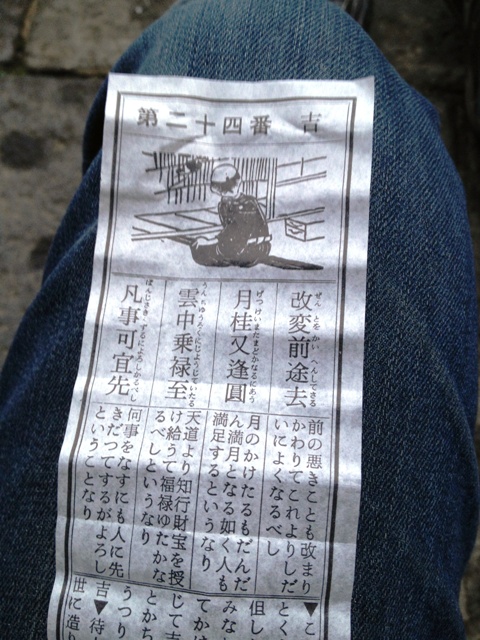 第二十四番 吉
改変前途去
ぜんとをかいへんしてさる
前の悪きことも改まり
かわりてこれよりしだ
いによくなるべし
月桂又逢圓
げつけいまたまどかなるにあう
月のかけたるもだんだ
ん満月となる如く人も
満足するというなり
雲中乗禄至
うんちゆうろくにじようじていたる
天道より知行財宝を授
け給うて福禄ゆたかな
るべしというなり
凡事可宜先
はんじさきんずるによろしかるべし
何事をなすにも人に先
きだつてするがよろし
ということなり
▼こ
とく
但し
みな
てか
じて吉
とかち
うつり
吉▼待
世に造り